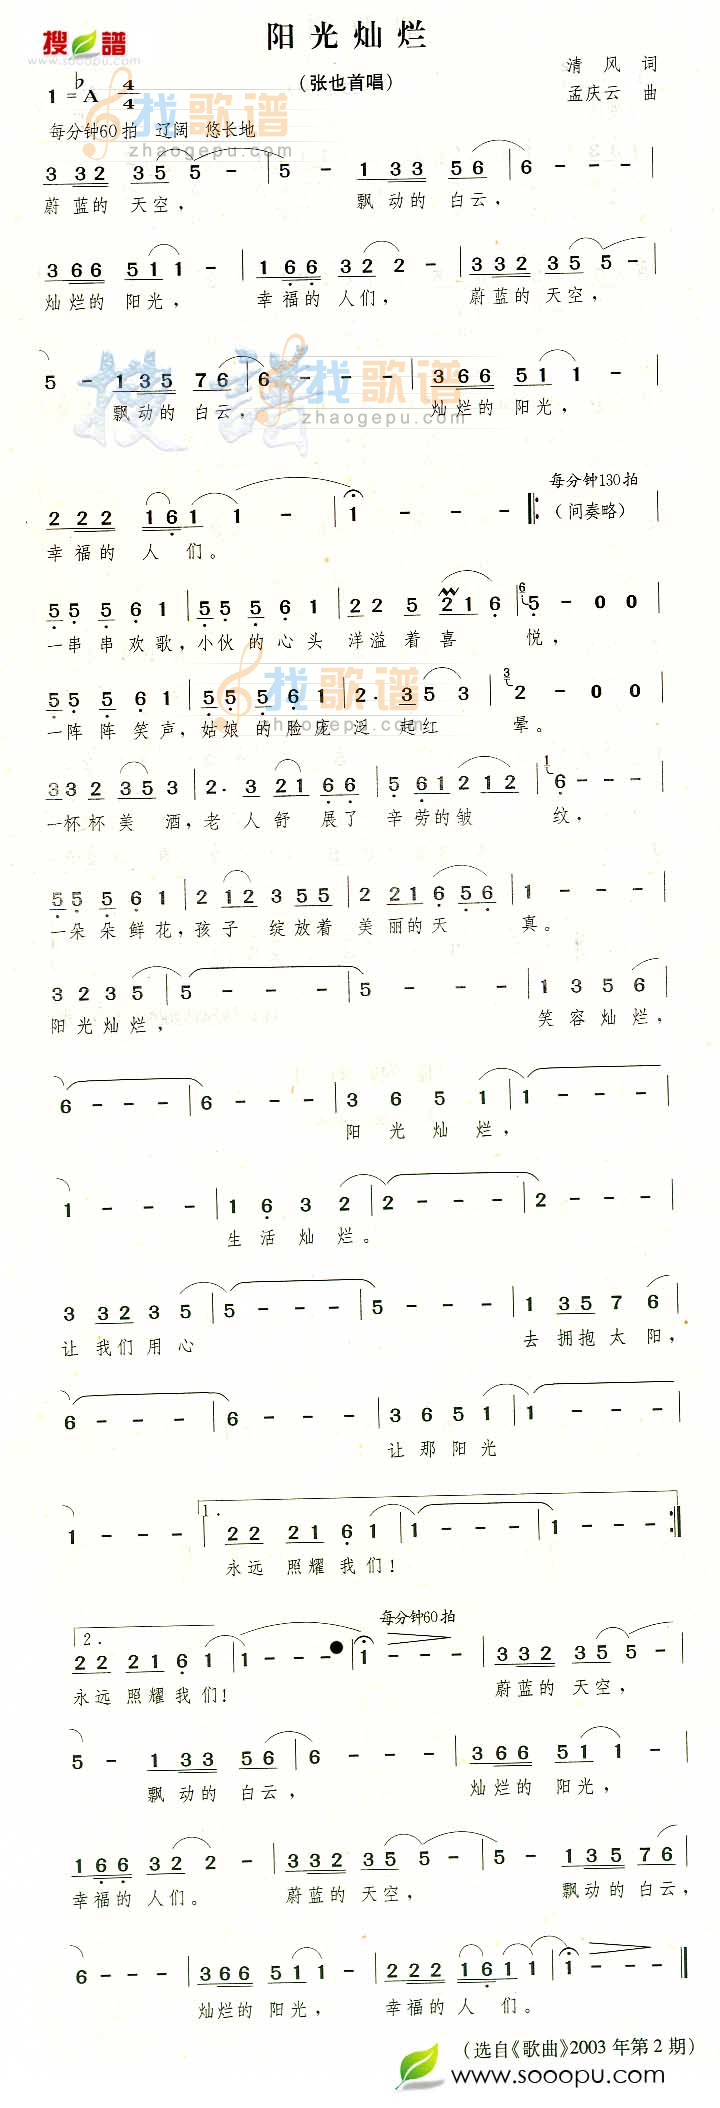 搜谱
www.sooopu.com
阳光灿烂
(张也首唱)
清 风 词
孟庆云 曲
1=♭A 4/4
每分钟60拍 辽阔 悠长地
找歌谱
zhaogepu.com
3 3 2 3 5 5 - | 5 - 1 3 3 5 6 | 6 - - - |
蔚 蓝 的 天 空, 飘 动 的 白 云,
3 6 6 5 1 1 - | 1 6 6 3 2 2 - | 3 3 2 3 5 5 - |
灿 烂 的 阳 光, 幸 福 的 人 们, 蔚 蓝 的 天 空,
5 - 1 3 5 7 6 | 6 - - - | 3 6 6 5 1 1 - |
飘 动 的 白 云, 灿 烂 的 阳 光,
搜谱
找歌谱
zhaogepu.com
每分钟130拍
2 2 2 1 6 1 1 - - | 1 - - - |: (间奏略) |
幸 福 的 人 们。
5 5 5 6 1 | 5 5 5 6 1 | 2 2 5 2 1 6 | 6 5 - 0 0 |
一 串 串 欢 歌, 小 伙 的 心 头 洋 溢 着 喜 悦,
找歌谱
zhaogepu.com
5 5 5 6 1 | 5 5 5 6 1 | 2. 3 5 3 | 3 2 - 0 0 |
一 阵 阵 笑 声, 姑 娘 的 脸 庞 泛 起 红 晕。
3 3 2 3 5 3 | 2. 3 2 1 6 6 | 5 6 1 2 2 1 2 | 1 6 - - - |
一 杯 杯 美 酒, 老 人 舒 展 了 辛 劳 的 皱 纹,
5 5 5 6 1 | 2 1 2 3 5 5 | 2 2 1 6 5 6 | 1 - - - |
一 朵 朵 鲜 花, 孩 子 绽 放 着 美 丽 的 天 真。
3 2 3 5 | 5 - - - | 5 - - - | 1 3 5 6 |
阳 光 灿 烂, 笑 容 灿 烂,
6 - - - | 6 - - - | 3 6 5 1 | 1 - - - |
阳 光 灿 烂,
1 - - - | 1 6 3 2 | 2 - - - | 2 - - - |
生 活 灿 烂。
3 3 2 3 5 | 5 - - - | 5 - - - | 1 3 5 7 6 |
让 我 们 用 心 去 拥 抱 太 阳,
6 - - - | 6 - - - | 3 6 5 1 | 1 - - - |
让 那 阳 光
1.
1 - - - | 2 2 2 1 6 1 | 1 - - - | 1 - - - :|
永 远 照 耀 我 们!
每分钟60拍
2.
2 2 2 1 6 1 | 1 - - - | 1 - - - | 3 3 2 3 5 5 - |
永 远 照 耀 我 们! 蔚 蓝 的 天 空,
5 - 1 3 3 5 6 | 6 - - - | 3 6 6 5 1 1 - |
飘 动 的 白 云, 灿 烂 的 阳 光,
1 6 6 3 2 2 - | 3 3 2 3 5 5 - | 5 - 1 3 5 7 6 |
幸 福 的 人 们。 蔚 蓝 的 天 空, 飘 动 的 白 云,
6 - - - | 3 6 6 5 1 1 - | 2 2 2 1 6 1 1 | 1 - - - ‖
灿 烂 的 阳 光, 幸 福 的 人 们。
(选自《歌曲》2003 年第 2 期)
www.sooopu.com